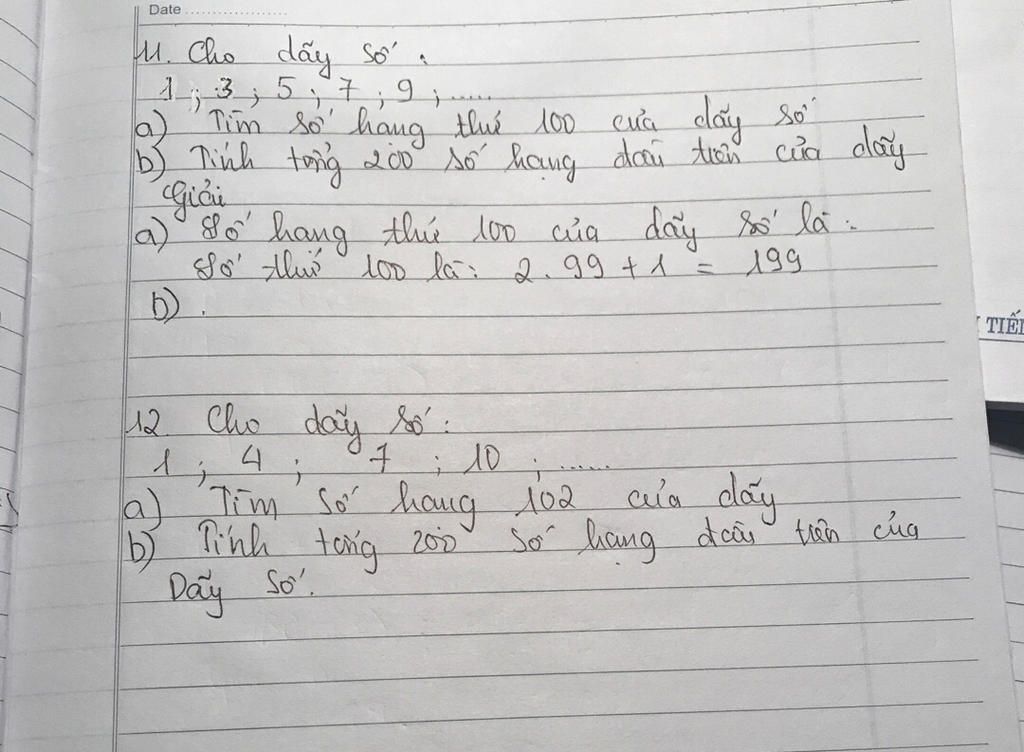 Date
11. Cho dãy số :
1 ; 3 ; 5 ; 7 ; 9 ; .....
a) Tìm số hạng thứ 100 của dãy số
b) Tính tổng 200 số hạng đầu tiên của dãy
Giải
a) Số hạng thứ 100 của dãy số là :
Số thứ 100 là: 2.99 + 1 = 199
b) .
TIẾN
12. Cho dãy số :
1 ; 4 ; 7 ; 10 ; ......
a) Tìm số hang 102 của dãy
b) Tính tổng 200 số hạng đầu tiên của
Dãy số.